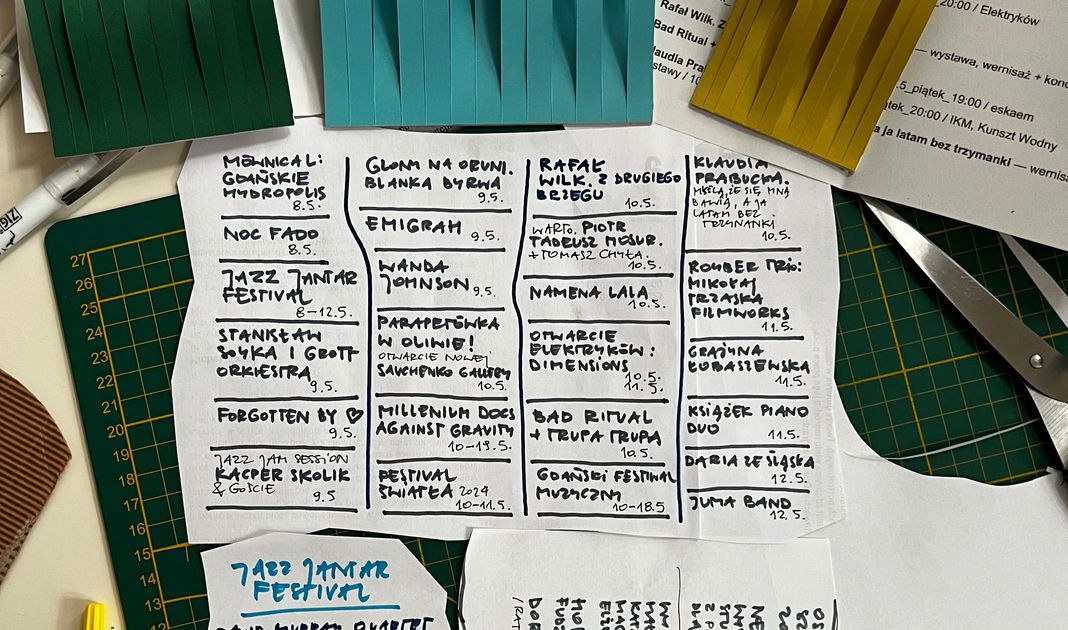 _20:00 / Elektryków
Rafał Wilk. Z
Bad Ritual +
laudia Pra
stawy / 10
— wystawa, wernisaż + konc
.5_piątek_19:00 / eskaem
ątek_20:00 / IKM, Kunszt Wodny
a ja latam bez trzymanki — wernisa
GDAŃSKIE
HYDROPOLIS
8.5.
NOC FADO
8.5.
JAZZ JANTAR
FESTIVAL
8-12.5.
STANISŁAW
SOYKA I GROTT
ORKIESTRA
9.5.
FORGOTTEN BY ♡
9.5.
JAZZ JAM SESSION
KACPER SKOLIK
& GOŚCIE
9.5
GLONM NA ORUNI.
BLANKA DYRWA
9.5.
EMIGRAH 9.5.
WANDA
JOHNSON 9.5.
PARAPETÓWKA
W OLIWIE!
OTWARCIE NOWEJ
SAVCHENKO GALLERY
10.5.
MILLENIUM DOCS
AGAINST GRAVITY
10-19.5.
FESTIVAL
ŚWIATŁA 2024
10-11.5.
RAFAŁ
WILK. Z DRUGIEGO
BRZEGU
10.5.
WARTO. PIOTR
TADEUSZ MOSUR.
+ TOMASZ CHYŁA.
10.5.
NAMENA LALA
10.5.
OTWARCIE
ELEKTRYKÓW:
DIMENSIONS
10.5.
11.5.
BAD RITUAL
+ TRUPA TRUPA
10.5.
GDAŃSKI FESTIWAL
MUZYCZNY
10-18.5
KLAUDIA
PRABUCKA.
MYŚLĄ, ŻE SIĘ MNĄ
BAWIĄ, A JA
LATAM BEZ
TRZYMANKI
10.5.
ROMBER TRIO:
MIKOŁAJ
TRZASKA
FILMWORKS
11.5.
GRAŻYNA
ŁOBASZEWSKA
11.5.
KSIĄŻEK PIANO
DUO
11.5.
DARIA ZE ŚLĄSKA
12.5.
JUMA BAND
12.5.
27
26
25
24
23
22
21
20
19
18
17
16
15
14
13
12
JAZZ JANTAR
FESTIVAL